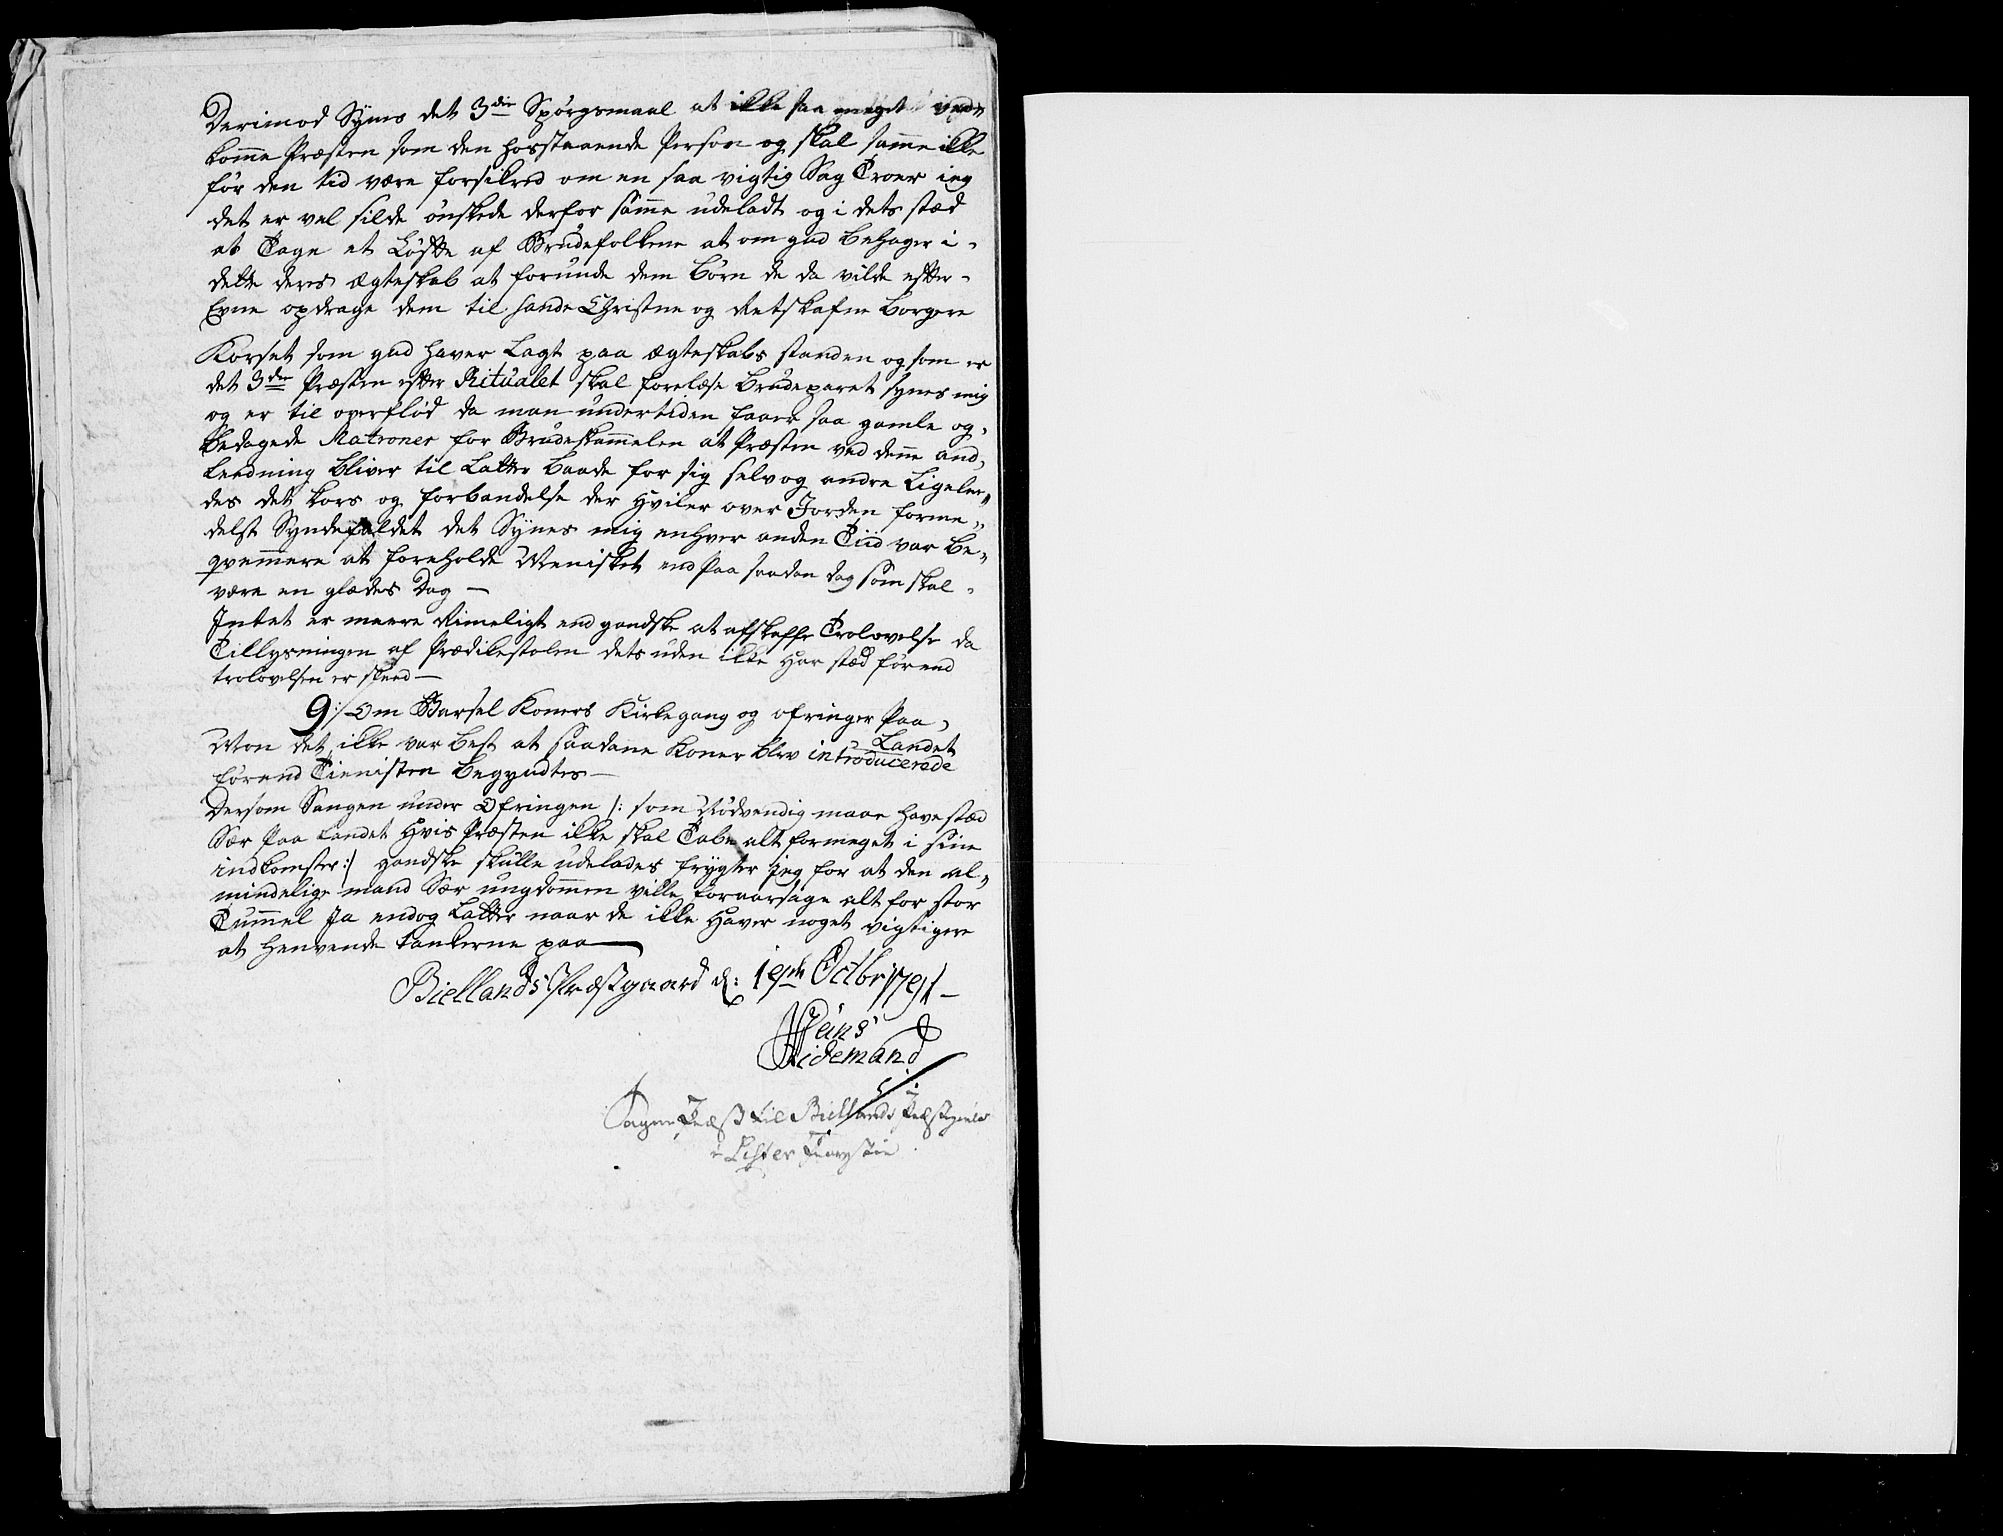 Derimod Syms det 3die Spørgsmaal at ikke saa meget ved¬
komme Præsten som den hosstaaende Person og skal samme ikke
før den tid være forsikred om en saa vigtig Sag Troer ieg
det er vel silde ønskede derfor samme udeladt og i dets stæd
at Tage et Løfte af Brudefolkene at om gud behager i¬
dette deres ægteskab at forunde dem Børn de da vilde efter¬
Evne opdrage dem til sande Christne og Retskafne borgere
Korset som gud haver Lagt paa ægteskabs standen og som er
det 3die Præsten efter Ritualet skal forelæse brudeparet synes mig
og er til operflød da man undertiden faaer saa gamle og¬
bedagede Matroner for Brudeskammelen at Præsten ved denne and¬
leedning bliver til Latter baade for sig selv og andre Ligeler¬
des det kors og forbandelse der Hviler over Jorden forme¬
delst Syndefaldet det Synes mig enhver anden Tiid var be¬
qvemmere at foreholde Menisket end paa saadan dag som skal
være en glædes Dag —
Intet er meere Rimeligt end gandske at afskaffe Trolovelse da
Tillysningen af Prædikestolen dets uden ikke Har stæd førend
trolovelsen er skeed —
9:/ Om Barsel Koners Kirkegang og ofringer Paa
Landet
Mon det ikke var best at saadane Koner blev introducerede
førend Tienisten begyndtes —
Dersom Sangen under Ofringen /: som Nødvendig maae have stæd
Sær Paa Landet Hvis Præsten ikke skal Tabe alt formeget i sine
indkomster:/ gandske skulle udelades frygter jeg for at den al¬
mindelige mand Sær ungdommen ville foraarsage alt for stor
Tummel Ja endog Latter naar de ikke Haver noget vigtigere
at henvende tankerne paa —
Biellands Præstgaard d: 19de Octbr 1791 —
Jens
Tidemand
Sogne Præst til Biellands Præstegield
i Lister